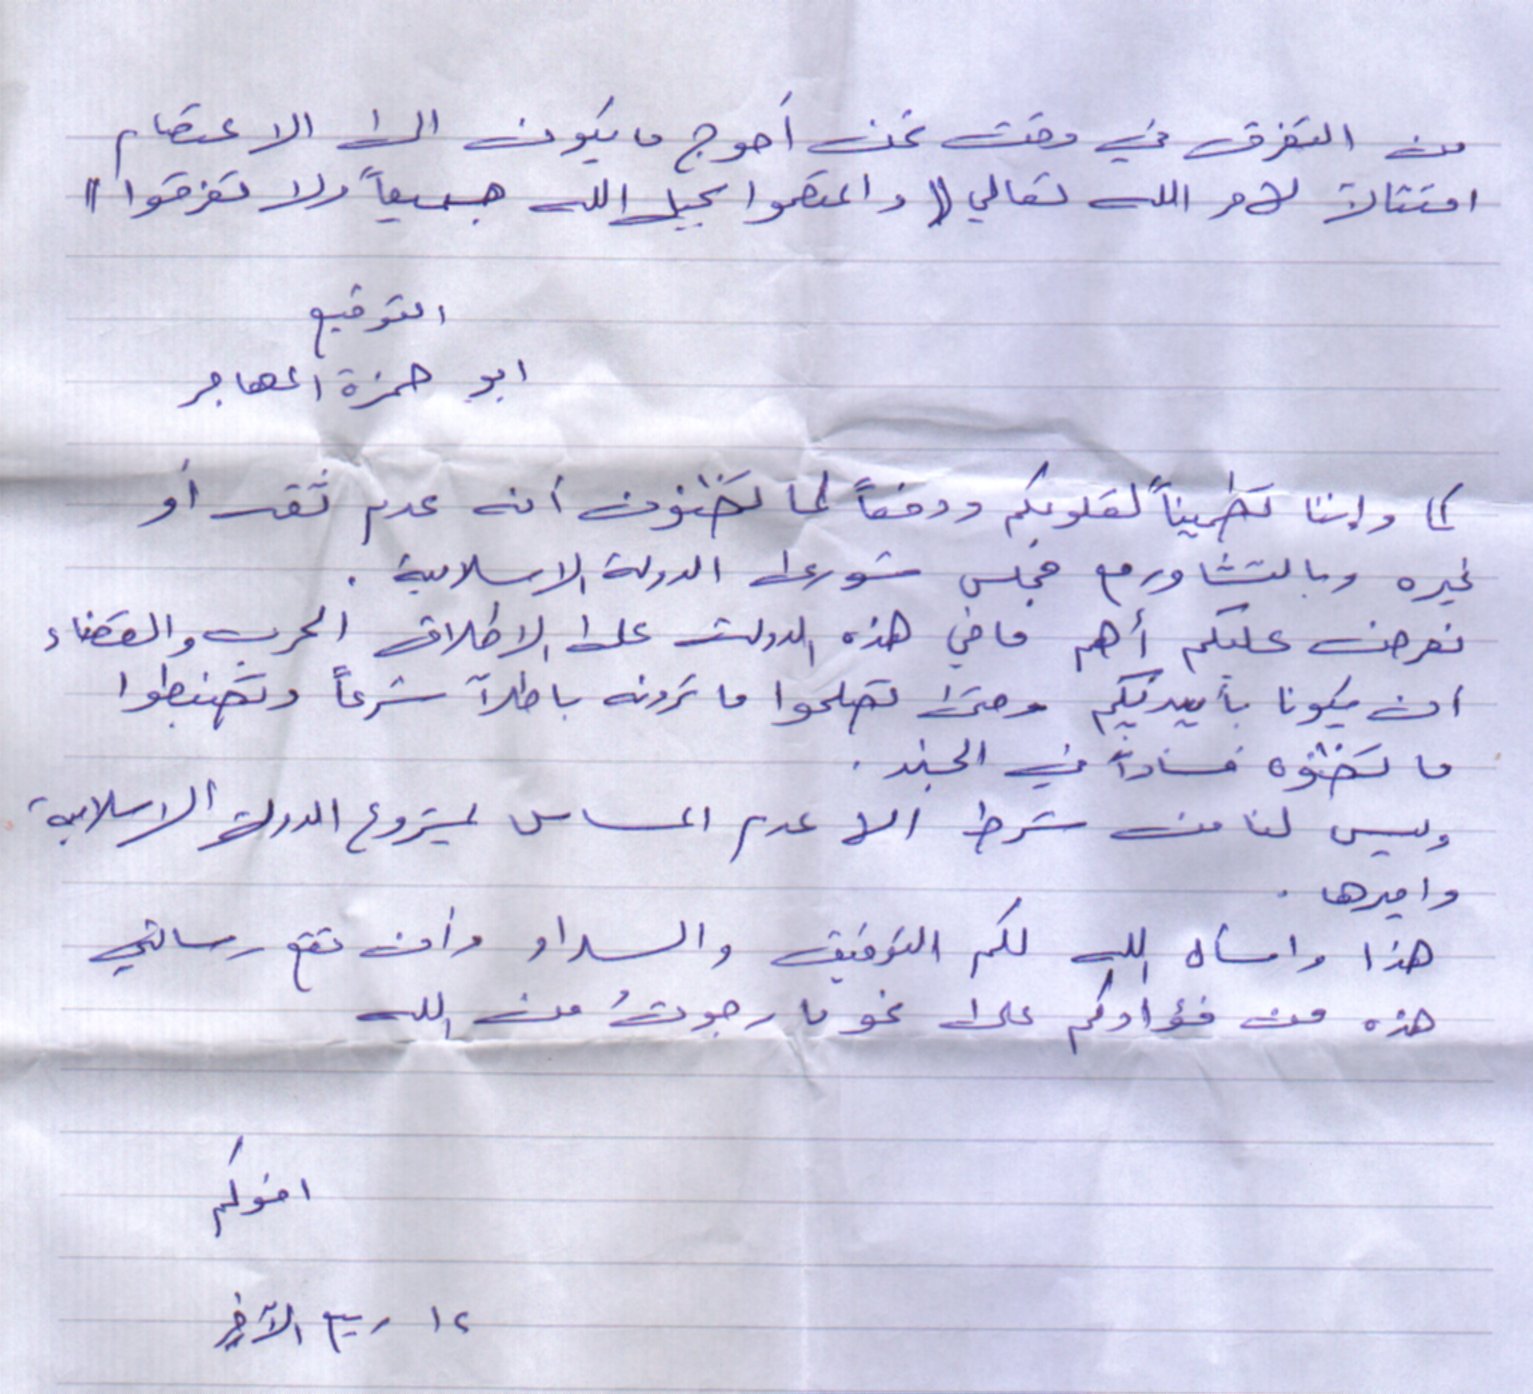 من التفرق في وقت نحن أحوج ما يكون الى الاعتصام
امتثالاً لامر الله تعالي (( واعتصموا بحبل الله جميعاً ولا تفرقوا ))
التوقيع
ابو حمزة المهاجر
كما وإننا تطميناً لقلوبكم ودفعاً لما تظنون أنه عدم ثقة أو
غيره وبالتشاور مع مجلس شورى الدولة الاسلامية .
نعرض عليكم أهم ما في هذه الدولة على الاطلاق الحرب والقضاء
ان يكونا بأيديكم وحتى تصلحوا ما ترونه باطلاً شرعاً وتضبطوا
ما تظنوه فساداً في الجند .
وليس لنا من شرط الا عدم المساس بمشروع الدولة الاسلامية
واميرها .
هذا واسأل الله لكم التوفيق والسداد وأن تقع رسالتي
هذه من فؤادكم على نحو ما رجوتُ من الله
اخوكم
١٢ ربيع الآخر